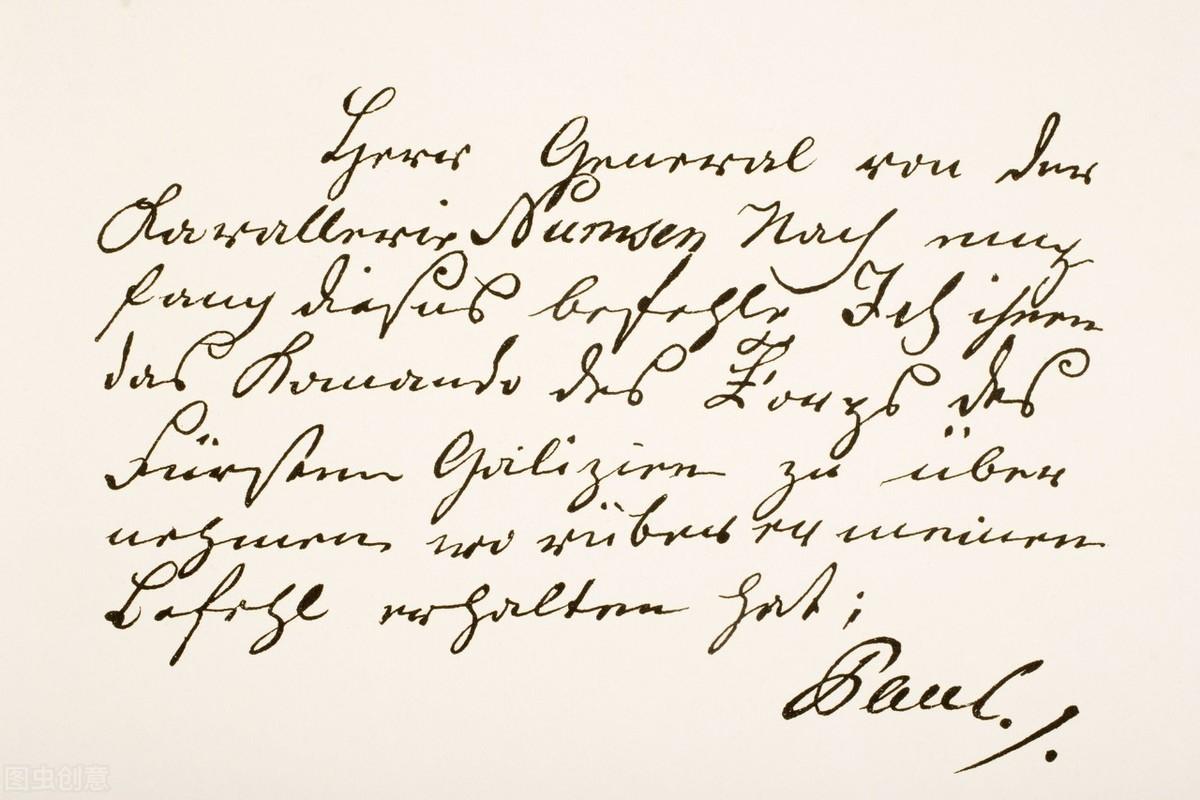 Herr General von der
Kavallerie Numsen Nach emp
fang dieses befehle Ich ihnen
das Komando des Korps des
Fürsten Galizien zu über
nehmen worüber er meinen
Befehl erhalten hat;
Paul.
图虫创意